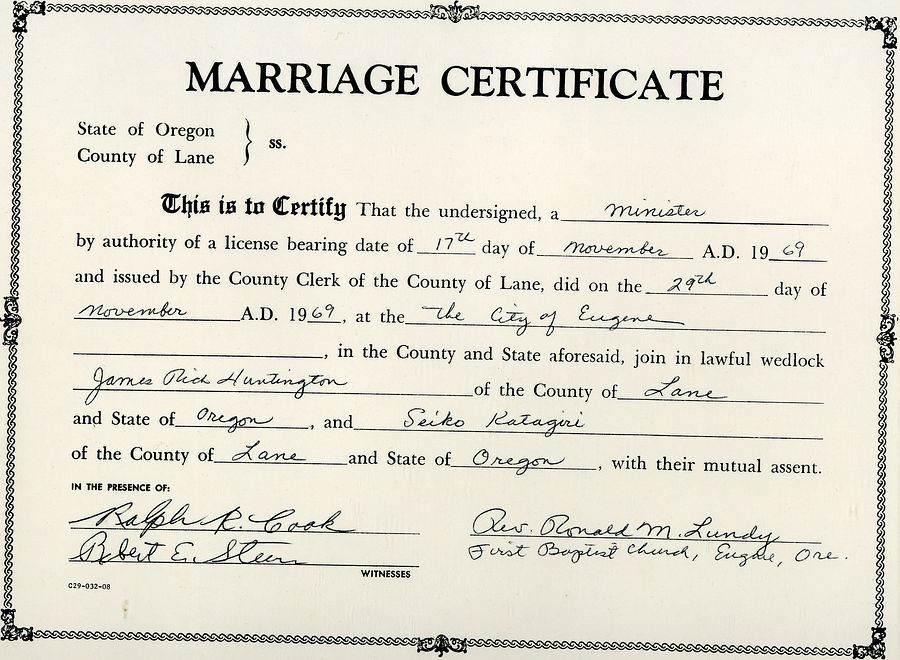 MARRIAGE CERTIFICATE
State of Oregon
County of Lane } ss.
This is to Certify That the undersigned, a Minister
by authority of a license bearing date of 17th day of November A.D. 1969
and issued by the County Clerk of the County of Lane, did on the 29th day of
November A.D. 1969, at the The City of Eugene
, in the County and State aforesaid, join in lawful wedlock
James Rich Huntington of the County of Lane
and State of Oregon, and Seiko Katagiri
of the County of Lane and State of Oregon, with their mutual assent.
IN THE PRESENCE OF:
Ralph R. Cook
Robert E. Steen
WITNESSES
Rev. Ronald M. Lundy
First Baptist Church, Eugene, Ore.
C29-032-08